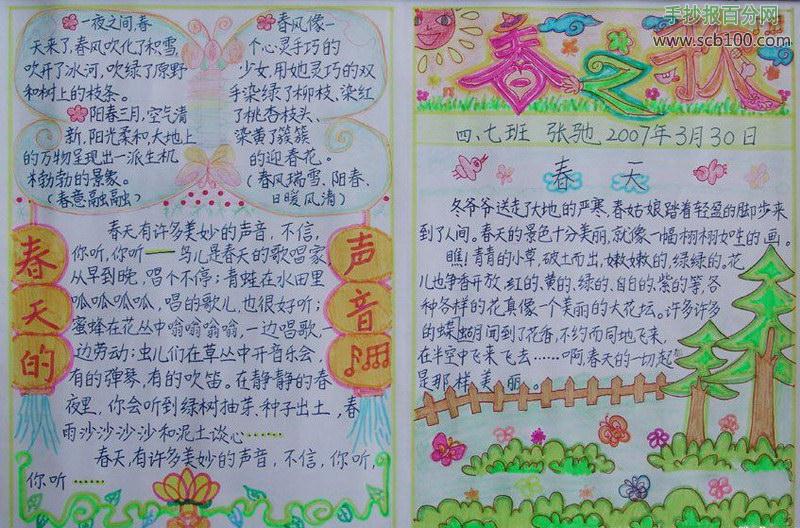 一夜之间,春
天来了,春风吹化了积雪,
吹开了冰河,吹绿了原野
和树上的枝条。
阳春三月,空气清
新,阳光柔和,大地上
的万物呈现出一派生机
勃勃的景象。
(春意融融)
春风像一
个心灵手巧的
少女,用她灵巧的双
手染绿了柳枝、染红
了桃杏枝头、
染黄了簇簇
的迎春花。
(春风瑞雪、阳春、
日暖风清)
春天的
声音
春天有许多美妙的声音,不信,
你听,你听——鸟儿是春天的歌唱家,
从早到晚,唱个不停;青蛙在水田里
呱呱呱呱,唱的歌儿,也很好听;
蜜蜂在花丛中嗡嗡嗡嗡,一边唱歌,一
边劳动;虫儿们在草丛中开音乐会,
有的弹琴,有的吹笛。在静静的春
夜里,你会听到绿树抽芽、种子出土,春
雨沙沙沙沙和泥土谈心……
春天,有许多美妙的声音,不信,你听,
你听……
手抄报百分网
www.scb100.com
春之秋
四、七班 张驰 2007年3月30日
春天
冬爷爷送走了大地的严寒,春姑娘踏着轻盈的脚步来
到了人间。春天的景色十分美丽,就像一幅栩栩如生的画。
瞧!青青的小草,破土而出,嫩嫩的,绿绿的。花
儿也争香开放,红的、黄的、绿的、白的、紫的等,各
种各样的花真像一个美丽的大花坛。许多许多
的蝴蝶闻到了花香,不约而同地飞来,
在半空中飞来飞去……啊春天的一切起
是那样美丽。